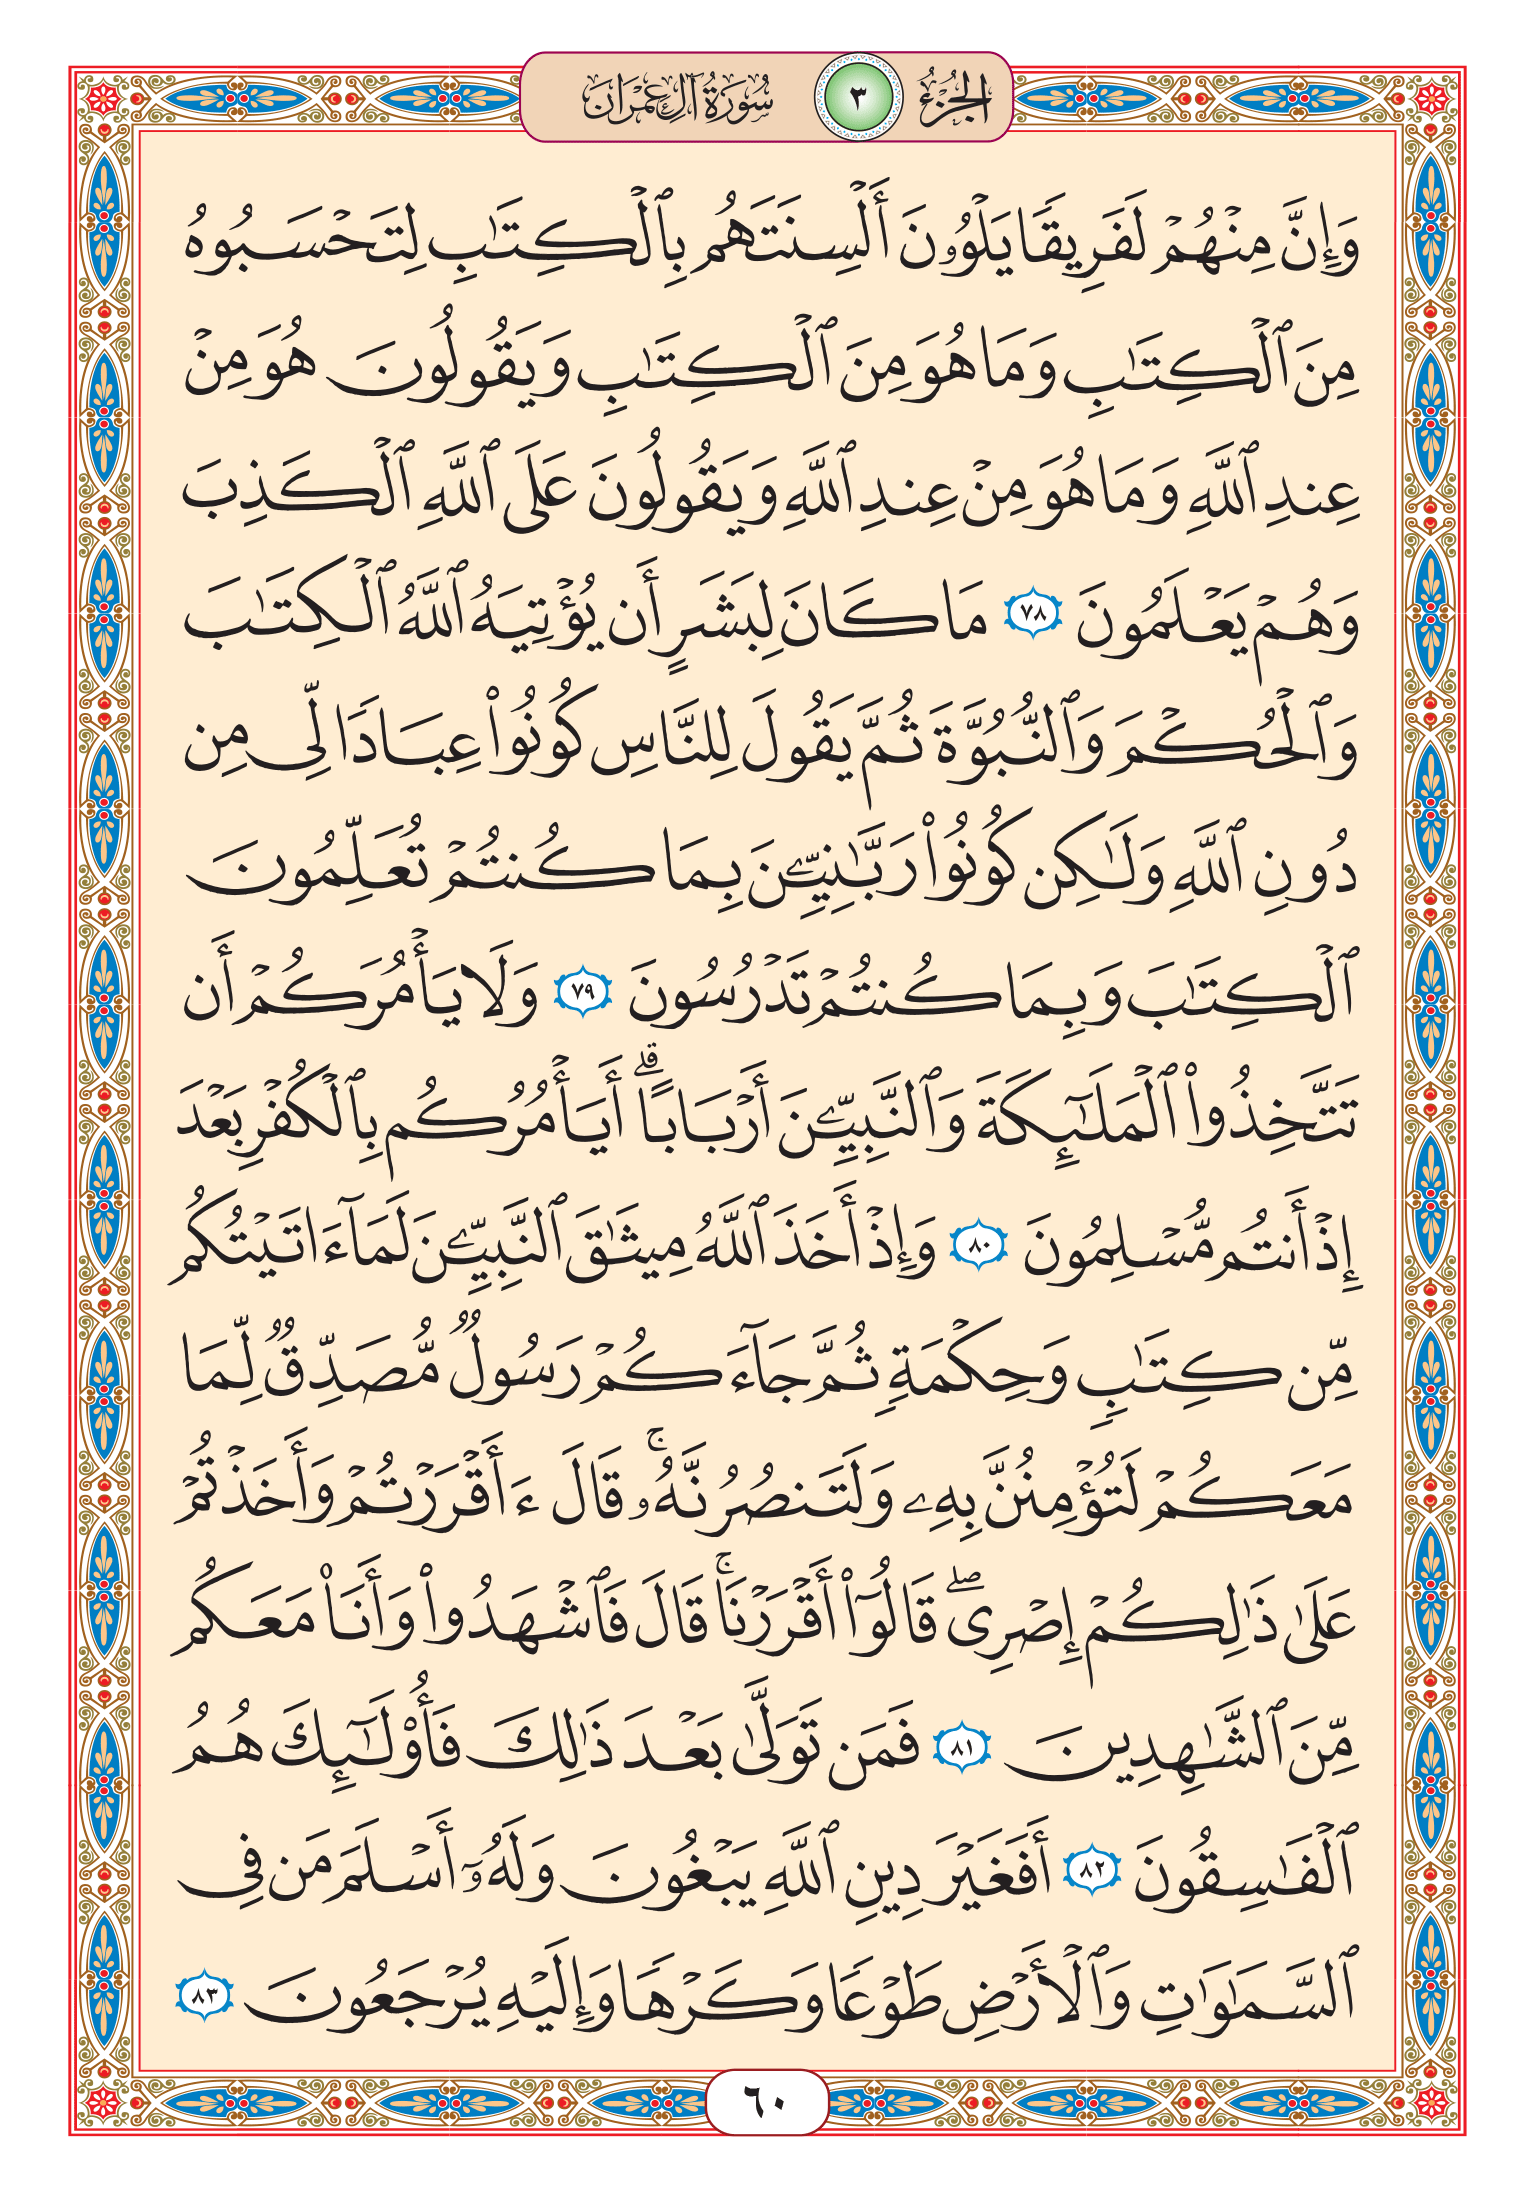 الجزء ٣ سورة آل عمران
وَإِنَّ مِنْهُمْ لَفَرِيقًا يَلْوُۥنَ أَلْسِنَتَهُم بِٱلْكِتَٰبِ لِتَحْسَبُوهُ
مِنَ ٱلْكِتَٰبِ وَمَا هُوَ مِنَ ٱلْكِتَٰبِ وَيَقُولُونَ هُوَ مِنْ
عِندِ ٱللَّهِ وَمَا هُوَ مِنْ عِندِ ٱللَّهِ وَيَقُولُونَ عَلَى ٱللَّهِ ٱلْكَذِبَ
وَهُمْ يَعْلَمُونَ ٧٨ مَا كَانَ لِبَشَرٍ أَن يُؤْتِيَهُ ٱللَّهُ ٱلْكِتَٰبَ
وَٱلْحُكْمَ وَٱلنُّبُوَّةَ ثُمَّ يَقُولَ لِلنَّاسِ كُونُوا۟ عِبَادًا لِّى مِن
دُونِ ٱللَّهِ وَلَٰكِن كُونُوا۟ رَبَّٰنِيِّۦنَ بِمَا كُنتُمْ تُعَلِّمُونَ
ٱلْكِتَٰبَ وَبِمَا كُنتُمْ تَدْرُسُونَ ٧٩ وَلَا يَأْمُرَكُمْ أَن
تَتَّخِذُوا۟ ٱلْمَلَٰٓئِكَةَ وَٱلنَّبِيِّۦنَ أَرْبَابًا ۗ أَيَأْمُرُكُم بِٱلْكُفْرِ بَعْدَ
إِذْ أَنتُم مُّسْلِمُونَ ٨٠ وَإِذْ أَخَذَ ٱللَّهُ مِيثَٰقَ ٱلنَّبِيِّۦنَ لَمَآ ءَاتَيْتُكُم
مِّن كِتَٰبٍ وَحِكْمَةٍ ثُمَّ جَآءَكُمْ رَسُولٌ مُّصَدِّقٌ لِّمَا
مَعَكُمْ لَتُؤْمِنُنَّ بِهِۦ وَلَتَنصُرُنَّهُۥ ۚ قَالَ ءَأَقْرَرْتُمْ وَأَخَذْتُمْ
عَلَىٰ ذَٰلِكُمْ إِصْرِى ۖ قَالُوٓا۟ أَقْرَرْنَا ۚ قَالَ فَٱشْهَدُوا۟ وَأَنَا۠ مَعَكُم
مِّنَ ٱلشَّٰهِدِينَ ٨١ فَمَن تَوَلَّىٰ بَعْدَ ذَٰلِكَ فَأُو۟لَٰٓئِكَ هُمُ
ٱلْفَٰسِقُونَ ٨٢ أَفَغَيْرَ دِينِ ٱللَّهِ يَبْغُونَ وَلَهُۥٓ أَسْلَمَ مَن فِى
ٱلسَّمَٰوَٰتِ وَٱلْأَرْضِ طَوْعًا وَكَرْهًا وَإِلَيْهِ يُرْجَعُونَ ٨٣
٦٠